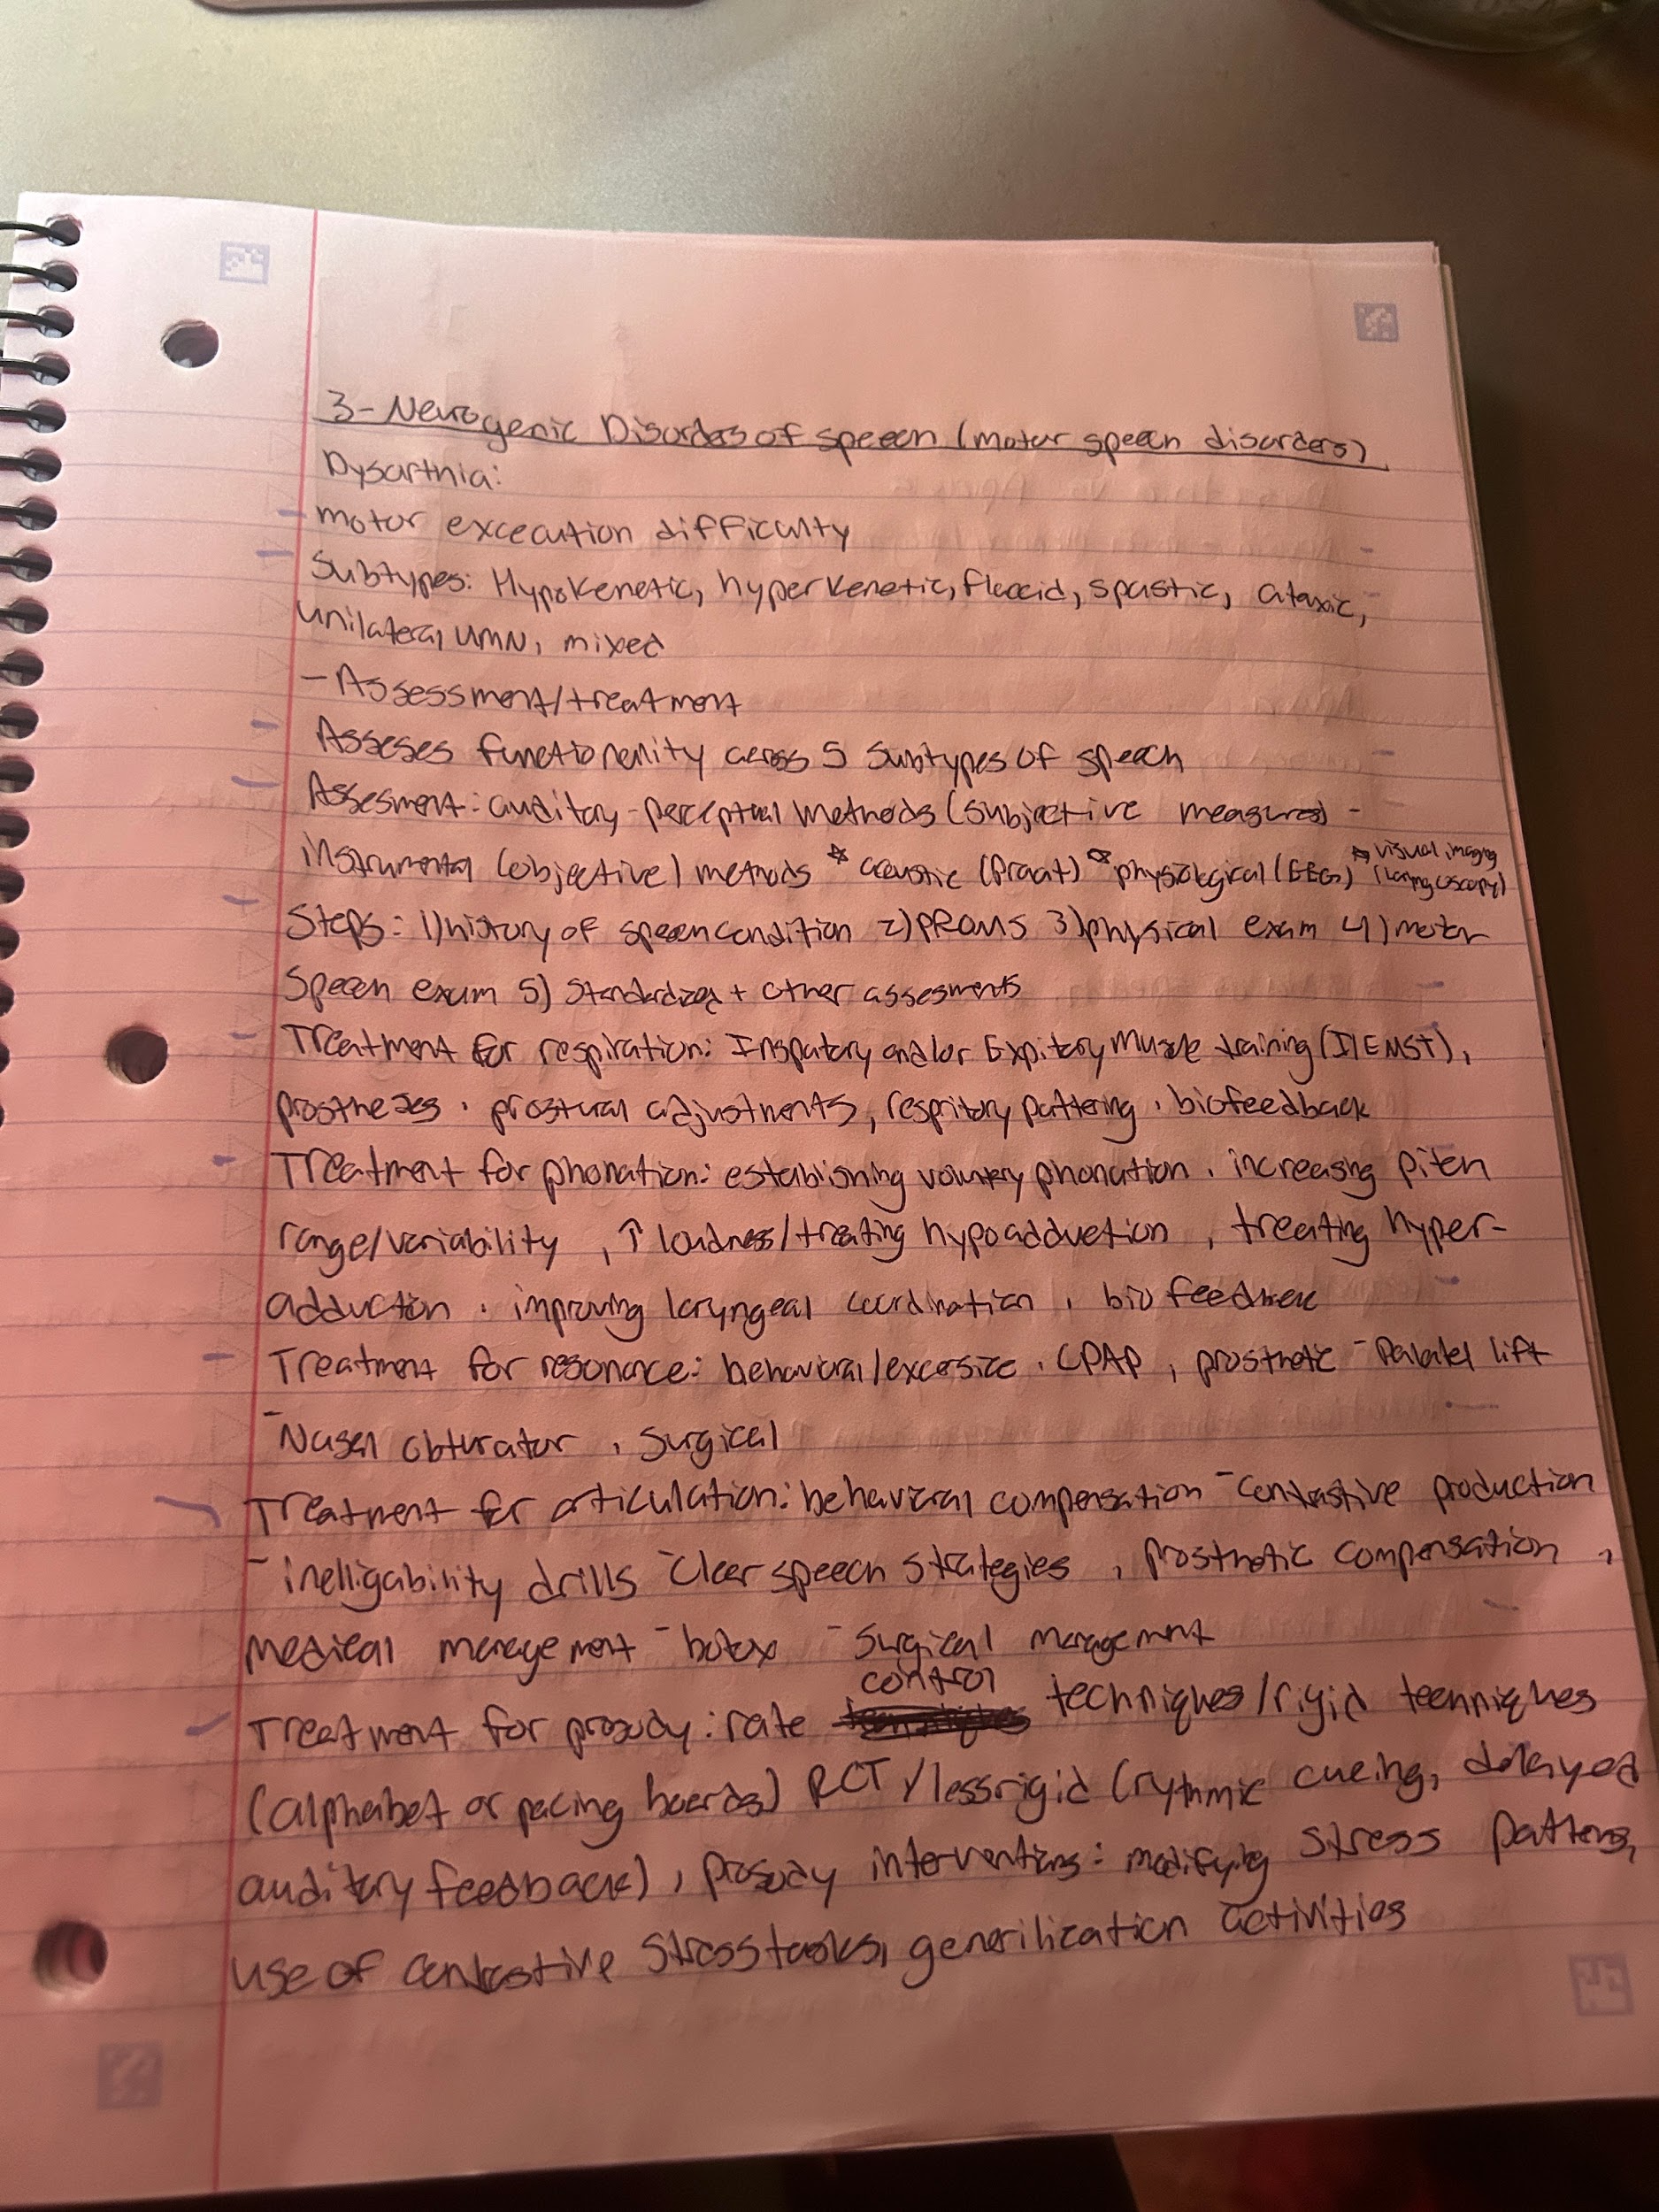 3- Neurogenic Disorders of speech (motor speech disorders)
Dysarthria:
motor excecution difficulty
Subtypes: Hypokenetic, hyperkenetic, flaccid, spastic, ataxic,
unilateral UMN, mixed
- Assessment/treatment
Asseses functionality across 5 subtypes of speech
Assesment: auditory-perceptual methods (subjective measures) -
instrumental (objective) methods ☆ acoustic (Praat) ☆ physiological (EEG) ☆ visual imaging (laryngoscopy)
Steps: 1) history of speech condition 2) PROMS 3) physical exam 4) motor
speech exam 5) standardized + other assesments
Treatment for respiration: Inspatory and/or Expitory muscle training (I/EMST),
prostheses, prostural adjustments, respritory pattering, biofeedback
Treatment for phonation: establishing voluntry phonation, increasing pitch
range/variability, ↑ loudness/treating hypoadduction, treating hyper-
adduction, improving laryngeal coordination, biofeedback
Treatment for resonance: behavioral/excersize, CPAP, prosthetic - Palatel lift
- Nasal obturator, surgical
Treatment for articulation: behavioral compensation - contrastive production
- inelligability drills - clear speech strategies, prosthetic compensation,
medical management - botox - surgical management
Treatment for prosody: rate control techniques/rigid techniques
(alphabet or pacing boards) RCT/less rigid (rythmic cueing, delayed
auditory feedback), prosody interventions: modifying stress patterns,
use of contrastive stress tasks, generilization activities